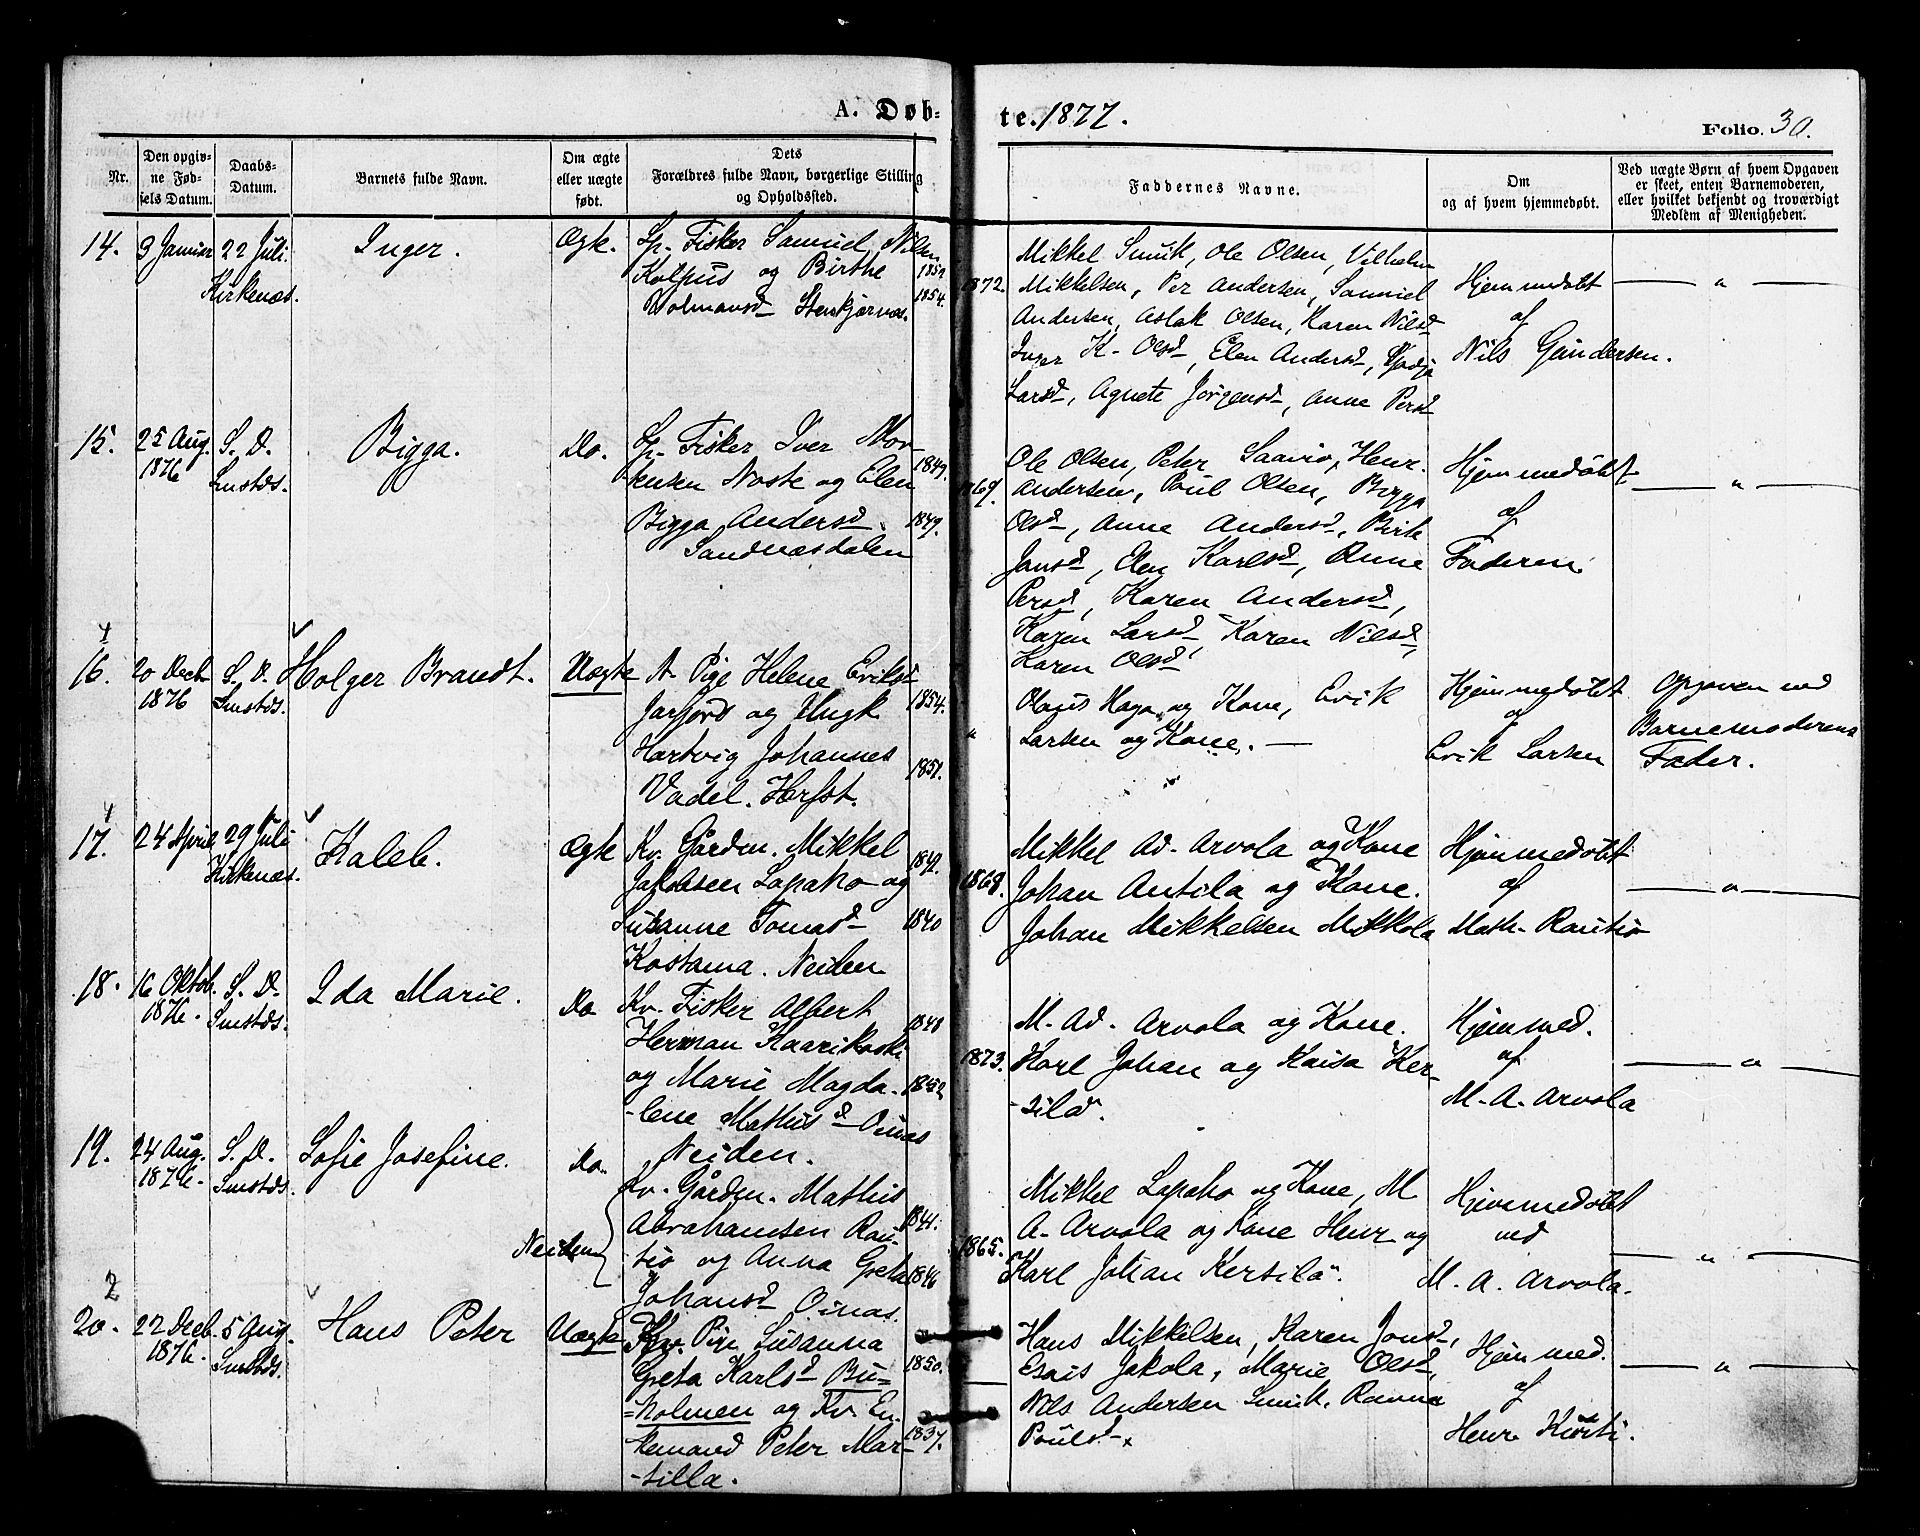 A. Døb-
te. 1877.
Folio. 30.
Nr.
Den opgiv-
ne Fød-
sels Datum.
Daabs-
Datum.
Barnets fulde Navn.
Om ægte
eller uægte
født.
Dets
Forældres fulde Navn, borgerlige Stilling
og Opholdssted.
Faddernes Navne.
Om
og af hvem hjemmedøbt.
Ved uægte Børn af hvem Opgaven
er skeet, enten Barnemoderen,
eller hvilket bekjendt og troværdigt
Medlem af Menigheden.
14.
9 Januar
22 Juli.
Kirkenæs.
Inger.
Ægte.
Lp. Fisker Samuel Nilsen
Kolpus og Birthe
Stenkjærnæs.
1854.
1872.
Mikkel Smuk, Ole Olsen, Vilhelm
Mikkelsen, Per Andersen, Samuel
Andersen, Aslak Olsen, Karen Nilsd
Inger K. Olsd, Elen Andersd,
Larsd, Agnete Jørgensd, Anne Persd
Hjemmedøbt
af
Nils Gundersen.
— " —
15.
25 Aug.
1876
S. D.
Smstds.
Bigga.
Do.
Lp. Fisker Iver Mor-
tensen Noste og Elen
Bigga Andersd.
Sandnæsdalen
1849.
1849.
1869.
Ole Olsen, Peter Saavio, Henr.
Andersen, Poul Olsen, Bigga
Olsd, Anne Andersd, Birte
Jonsd, Elen Karlsd, Anne
Persd, Karen Andersd,
Karen Larsd, Karen Nilsd,
Karen Olsd
Hjemmedøbt
af
Faderen
— " —
16.
20 Decb
1876
S. D.
Smstds.
Holger Brandt.
Uægte
N. Pige Helene Eriksd
Jarfjord og Ungk
Hartvig Johannes
Vadel. Herfst.
1854.
1851.
"
Olaus Haga og Kone, Erik
Larsen og Kone. —
Hjemmedøbt
af
Erik Larsen
Opgaven ved
Barnemoderens
Fader.
17.
24 April
29 Juli
Kirkenæs.
Kaleb.
Ægte
Kv. Gårdm. Mikkel
Jakobsen Lapaho og
Susanne Tomasd
Kostama. Neiden
1840
1868.
Mikkel Ad. Arvola og Kone
Johan Antila og Kone.
Johan Mikkelsen Mikkola
Hjemmedøbt
af
Math. Rautio
— " —
18.
16 Oktob.
1876.
S. D.
Smstds.
Ida Marie.
Do
Kv. Fisker Albert
Herman Kaarikoski
og Marie Magda-
-lene Mathisd Oinas
Neiden.
1848
1873.
M. Ad. Arvola og Kone.
Karl Johan og Kaisa Ker-
-silä.
Hjemmed.
af
M. A. Arvola
— " —
19.
24 Aug.
1876.
S. D.
Smstds.
Sofie Josefine.
Do.
Neiden
Kv. Gårdm. Mathis
Abrahamsen Rau-
-tio og Anna Greta
Johansd Oinas.
1841.
1846
1865.
Mikkel Lapaho og Kone, M
A. Arvola og Kone Henr og
Karl Johan Kersilä.
Hjemmedøbt
ved
M. A. Arvola.
— " —
2
20.
22 Decb.
1876.
5 Aug.
Smstds.
Hans Peter
Uægte
Kv. Pige Susanna
Greta Karlsd Bu=
=holmen og Kv. En-
kemand Peter Mar-
-tilla.
1850.
1837.
Hans Mikkelsen, Karen Jonsd,
Esais Jakola, Marie Olsd,
Nils Andersen Smuk, Ravna
Poulsd.
Hjemmed.
af
Henr. Kurti.
— " —